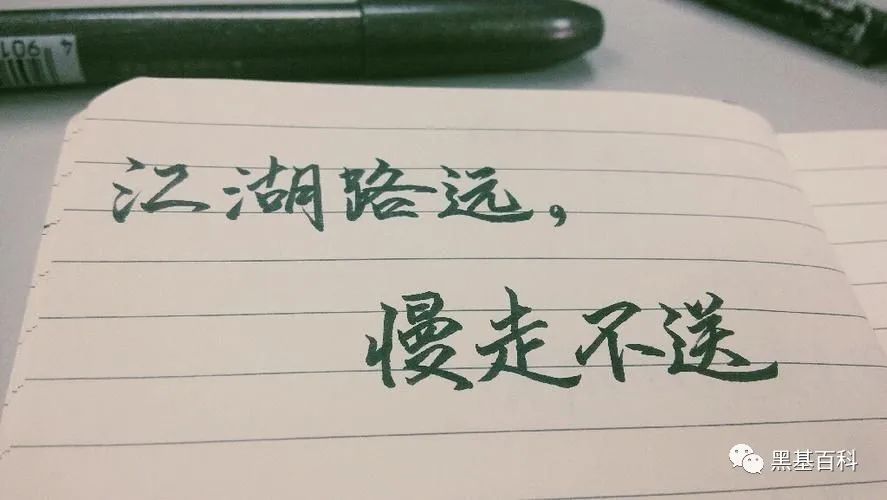 4 901
江湖路远，
慢走不送
黑基百科